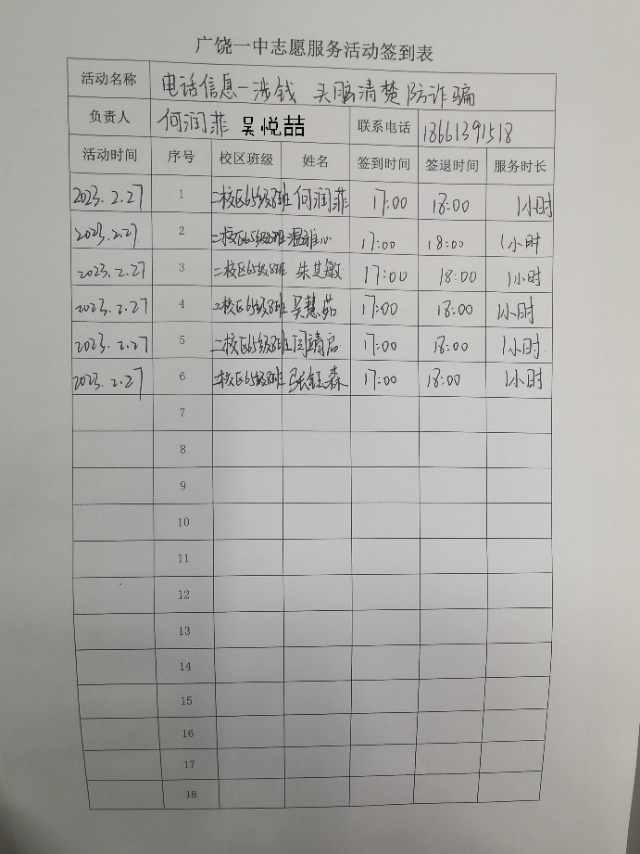 广饶一中志愿服务活动签到表
活动名称 电话信息一涉钱 头脑清楚防诈骗
负责人 何润菲 吴悦喆 联系电话 18661391518
活动时间 序号 校区班级 姓名 签到时间 签退时间 服务时长
2023.2.27 1 二校区65级8班 何润菲 17:00 18:00 1小时
2023.2.27 2 二校区65级8班 17:00 18:00 1小时
2023.2.27 3 二校区65级8班 朱其敏 17:00 18:00 1小时
2023.2.27 4 二校区65级8班 吴慧茹 17:00 18:00 1小时
2023.2.27 5 二校区65级8班 闫靖启 17:00 18:00 1小时
2023.2.27 6 二校区65级8班 张钰森 17:00 18:00 1小时
7
8
9
10
11
12
13
14
15
16
17
18